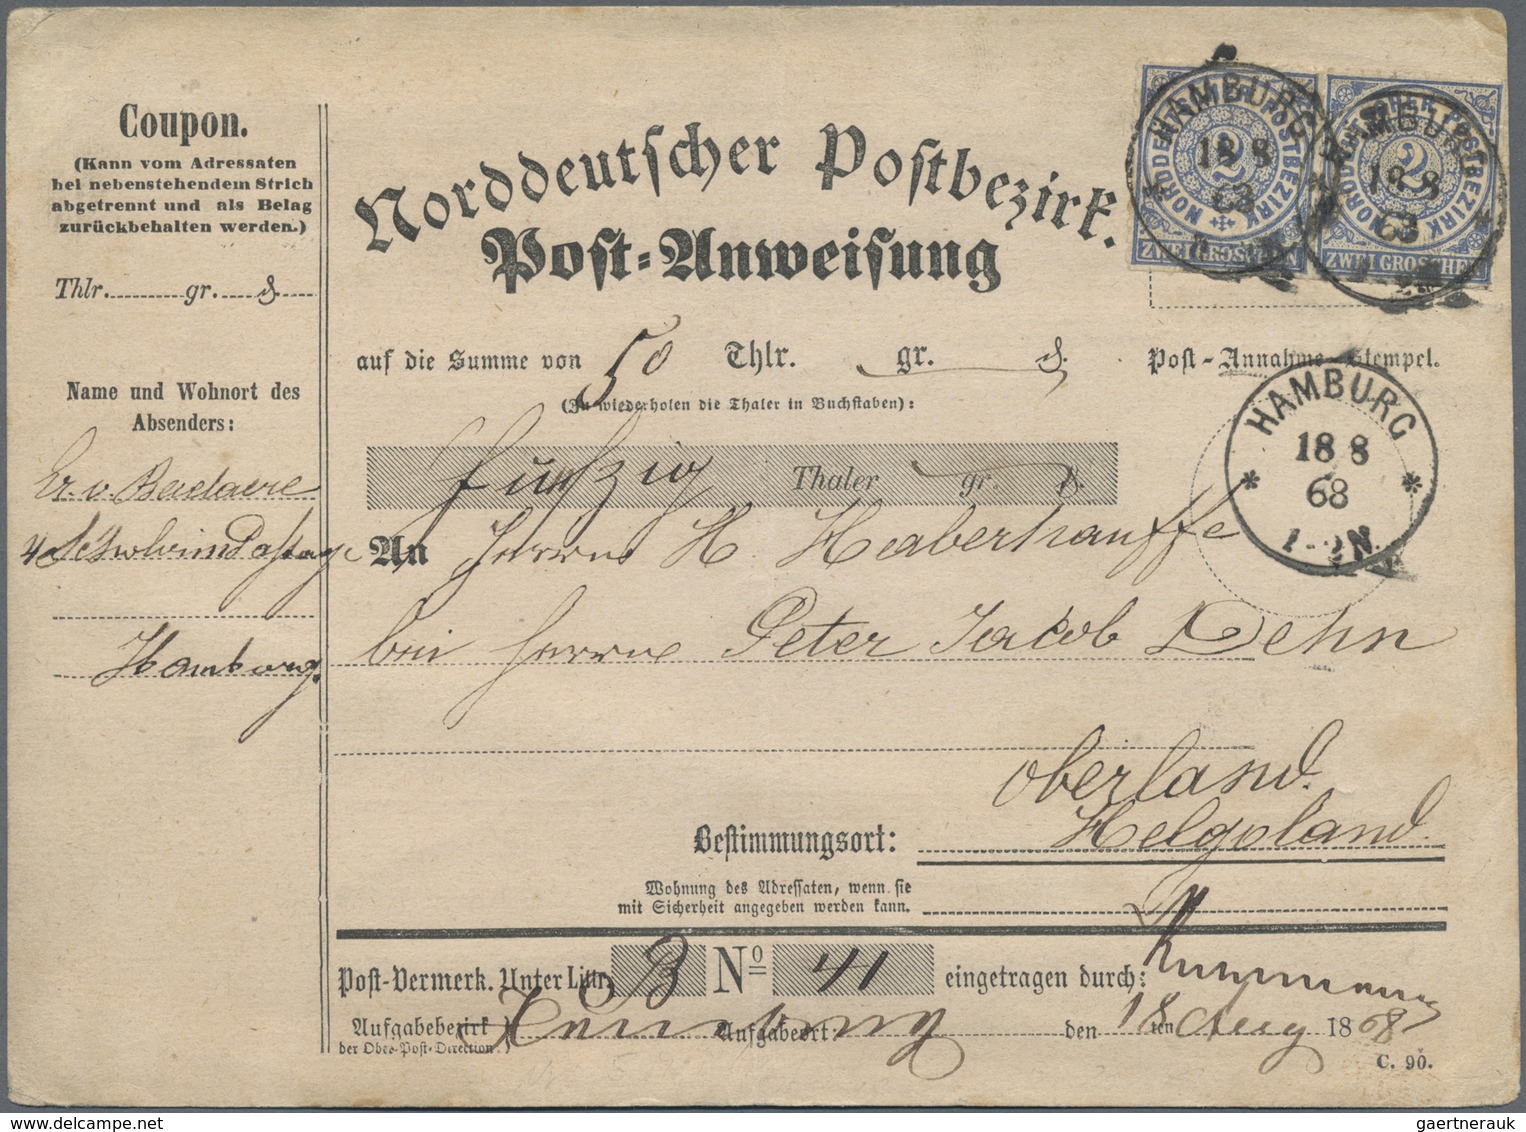 Coupon.
(Kann vom Adressaten
bei nebenstehendem Strich
abgetrennt und als Belag
zurückbehalten werden.)
Thlr. gr. ₰
Name und Wohnort des
Absenders:
Hamburg.
Norddeutscher Postbezirk.
Post-Anweisung
auf die Summe von 50 Thlr. gr. ₰.
(Zu wiederholen die Thaler in Buchstaben):
fünfzig Thaler gr. ₰.
An Herrn H. Haberhauffe
bei Herrn Peter Jacob Dehn
oberland.
Bestimmungsort: Helgoland.
Wohnung des Adressaten, wenn sie
mit Sicherheit angegeben werden kann.
Post-Vermerk. Unter Littr. B No 41 eingetragen durch:
Aufgabebezirk Hamburg Aufgabeort: den 18 ten Aug 1868
der Ober-Post-Direction.)
C. 90.
NORDDEUTSCHER POSTBEZIRK
2
ZWEI GROSCHEN
HAMBURG
18 8
68
NORDDEUTSCHER POSTBEZIRK
2
ZWEI GROSCHEN
HAMBURG
18 8
68
Post-Annahme-Stempel.
HAMBURG
18 8
68
1-2 N.
gaertnerauk @ delcampe.net